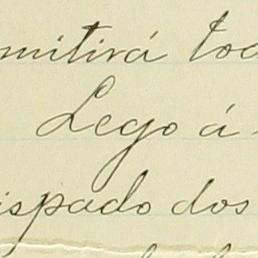 mitirá tod
Lego á
ispado dos